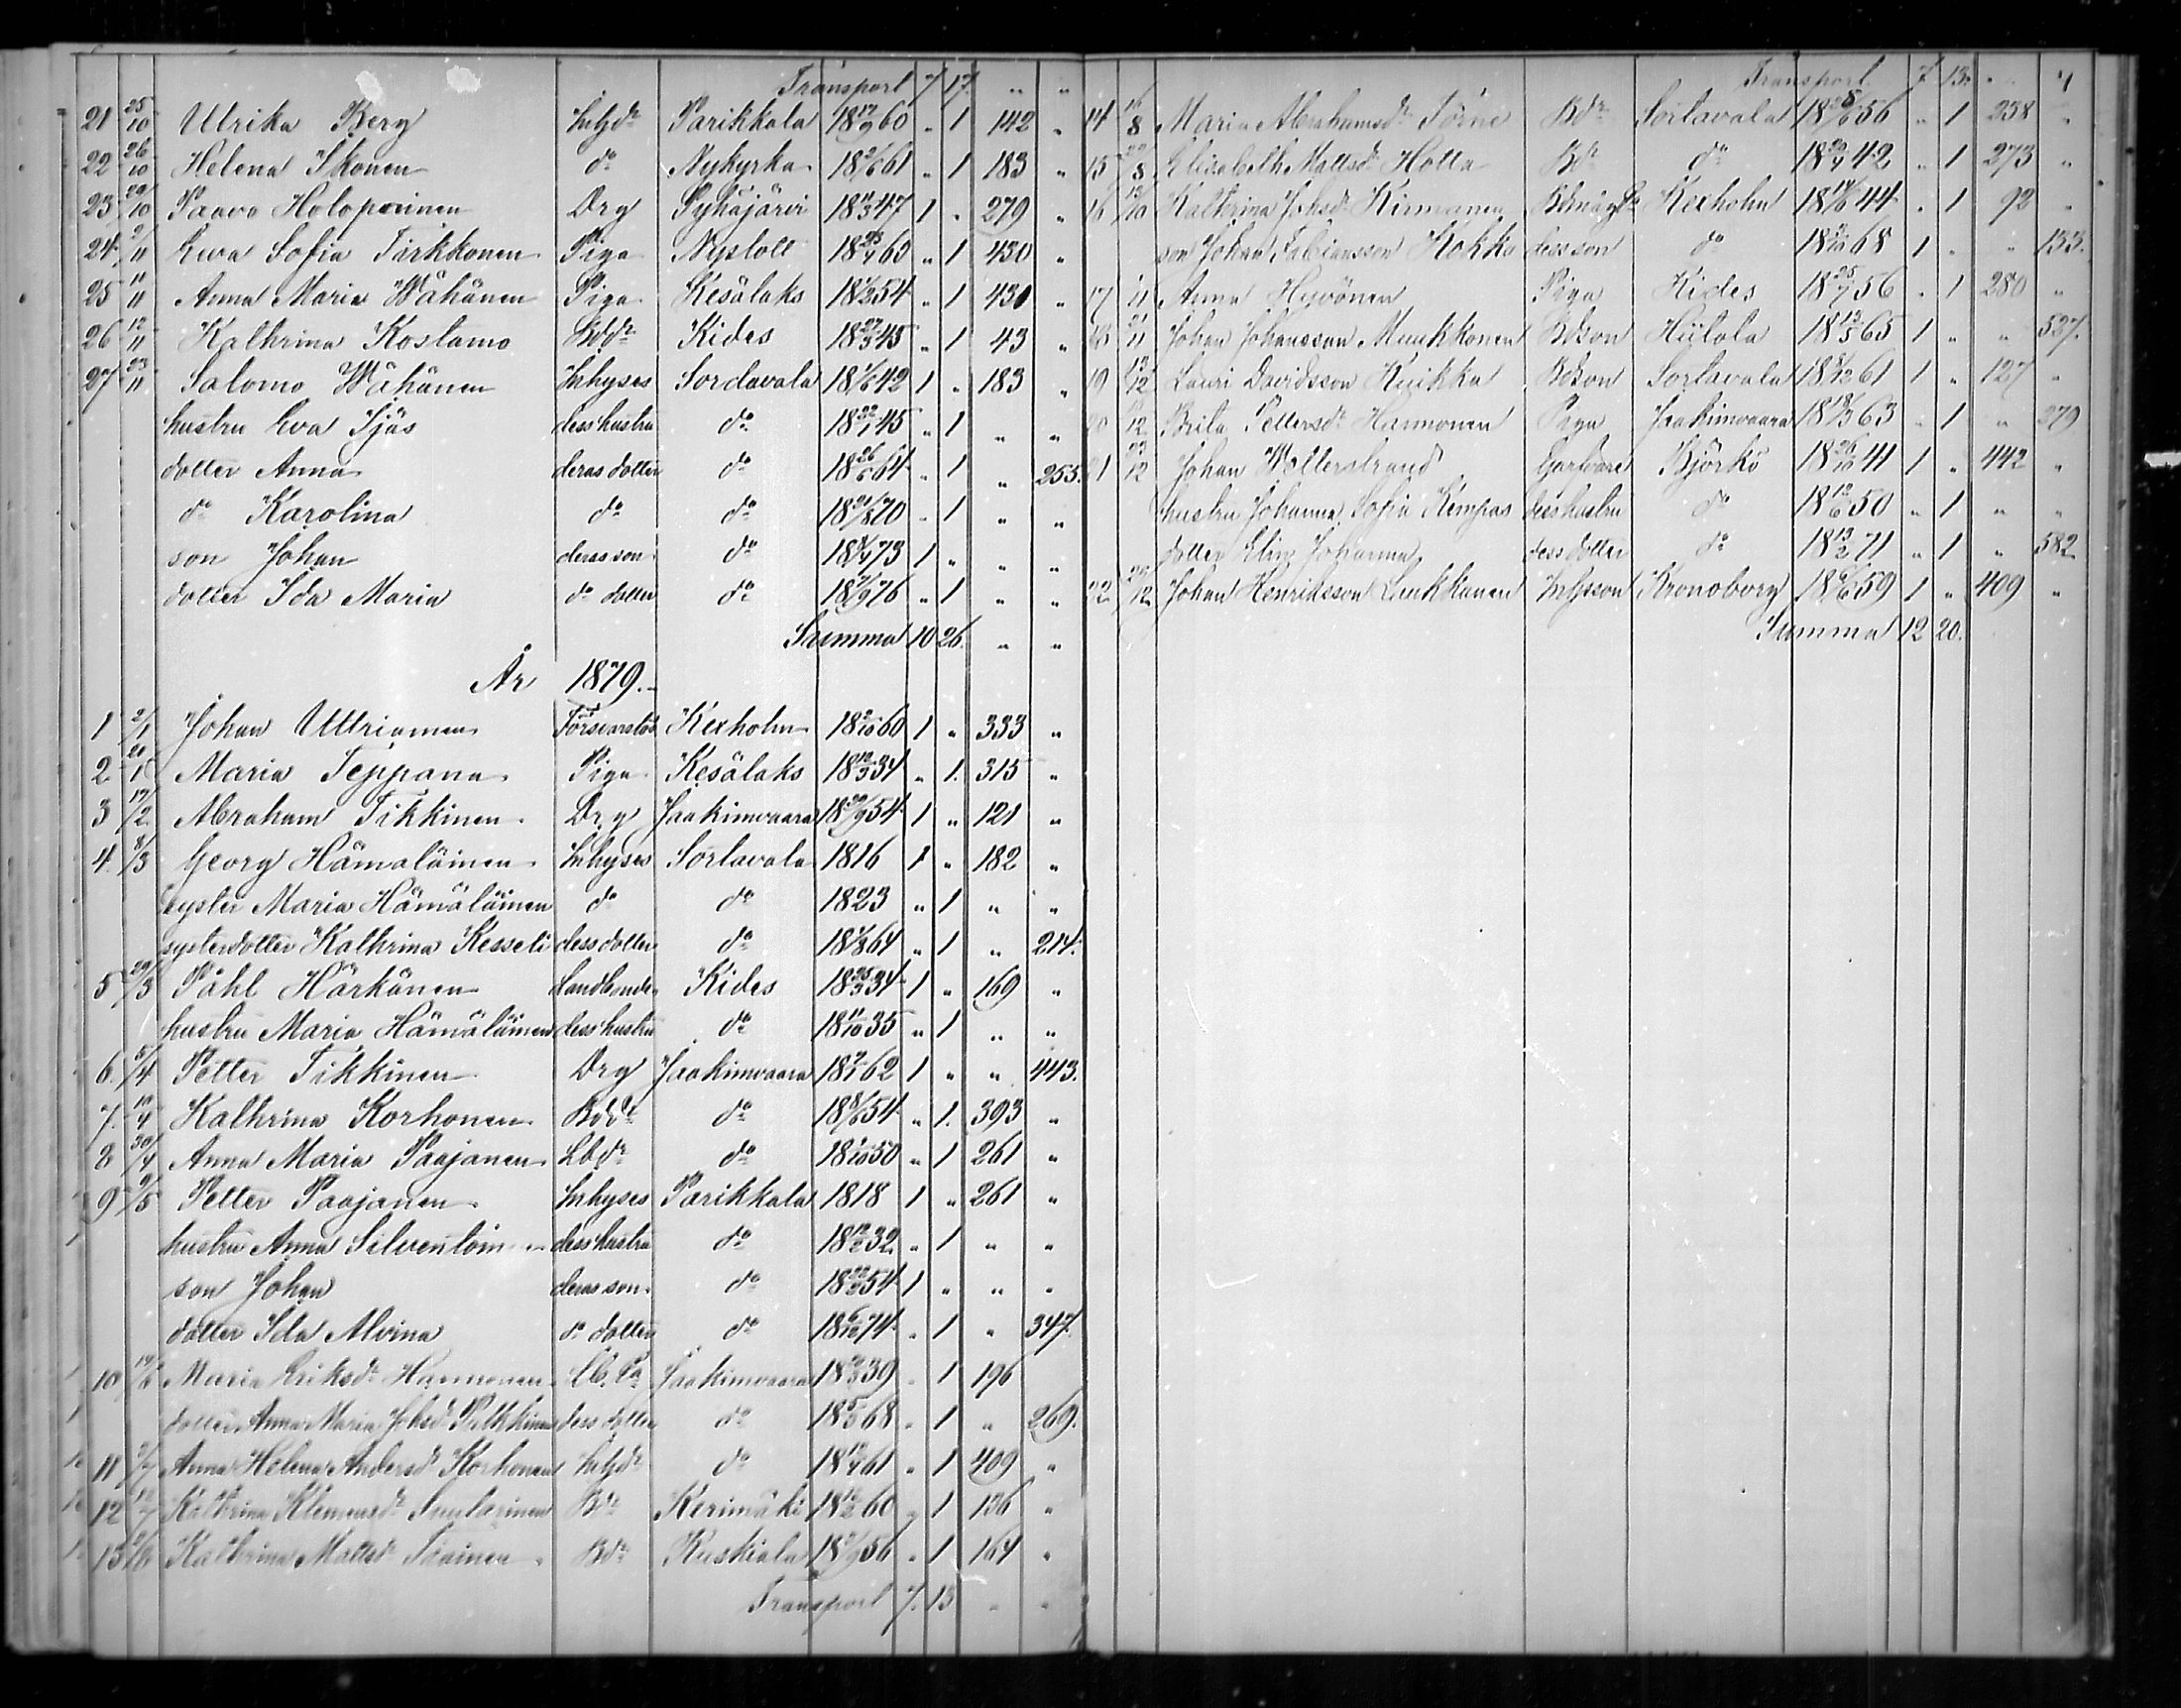 Transport 7 17. " "
21 25/10 Ulrika Berg Inhjdr Parikkala 18 12/9 60 " 1 142 "
22 26/10 Helena Ikonen do Nykyrka 18 2/6 61 " 1 183 "
23 29/10 Paavo Holopainen Drg Pyhäjärvi 18 11/3 47 1 " 279 "
24 2/11 Ewa Sofia Tirkkonen Piga Nyslott 18 63 " 1 430 "
25 11/11 Anna Maria Wähänen Piga Kesälaks 18 54 " 1 430 "
26 12/11 Kathrina Kostamo Bddr Kides 18 27/3 45 " 1 43 "
27 23/11 Salomo Wähänen Inhyses Sordavala 18 1/6 42 1 " 183 "
hustru Eva Ijäs dess hustru do 18 22/1 45 " 1 " "
dotter Anna deras dotter do 18 26/6 64 " 1 " 255.
do Karolina do do 18 21/8 70 " 1 " "
son Johan deras son do 18 73 1 " " "
dotter Ida Maria do dotter do 18 2/9 76 " 1 " "
Summa 10 26. " "
År 1879.
1 2/1 Johan Uttriainen Kexholm 18 2/10 60 1 " 333 "
2 20/1 Maria Teppana Piga Kesälaks 18 12/3 34 " 1. 315 "
3 17/2 Abraham Tikkinen Drg Jaakimvaara 18 29/9 54 1 " 121 "
4. 8/3 Georg Hämäläinen Inhyses Sortavala 1816 1 " 182 "
syster Maria Hämäläinen do do 1823 " 1 " "
systerdotter Kathrina Kesseli dess dotter do 18 1/8 64 " 1 " 214.
5 29/3 Påhl Härkönen Landbonde Kides 18 25/3 34 1 " 169 "
hustru Maria Hämäläinen dess hustru do 18 11/10 35 " 1 " "
6. 5/4 Petter Tikkinen Drg Jaakimvaara 18 7/1 62 1 " " 443.
7. 10/4 Kathrina Korhonen Bddr do 18 8/6 54 " 1. 393 "
8 30/4 Anna Maria Paajanen Lbdr do 18 1/10 50 " 1 261 "
9 9/5 Petter Paajanen Inhyses Parikkala 1818 1 " 261 "
hustru Anna Silventoin dess hustru do 18 12/2 32 " 1 " "
son Johan deras son do 18 54 1 " " "
dotter Ida Alvina do dotter do 18 6/10 74 " 1 " 347.
10 19/6 Maria Eriksdr Hannonen Jaakimvaara 18 39 " 1 196
dotter Anna Maria Johsdr Pitkkinen dess dotter do 18 5/3 68 " 1 " 269.
11 3/7 Anna Helena Andersdr Korhonen Inhjdr do 18 61 " 1 409 "
12 12/7 Kathrina Klemensdr Bdr Kerimäki 18 60 " 1 136 "
13 Kathrina Mattsdr Toivinen Bdr Ruskiala 18 7/9 56 " 1 164 "
Transport 7. 13 " "
Transport 7 13. " "
14 16/8 Maria Abrahamsdr Törne Bdr Sortavala 18 56 " 1 258 "
15 22/8 Elisabeth Mattsdr Hotta Bdr do 18 42 " 1 273 "
16 12/10 Kathrina Johsdr Kinnunen Kexholm 18 44 " 1 92 "
son Johan Fabiansson Kokko dess son do 18 68 1 " " 133.
17 11 Anna Hyvönen Piga Kides 18 25/7 56 " 1 280 "
18 21/11 Johan Johansson Muukkonen Bdson Hiitola 18 13/5 65 1 " " 527.
19 13/12 Lauri Davidsson Kuikka Bdson Sortavala 18 8/12 61 1 " 127 "
20 12 Brita Pettersdr Hannonen Piga Jaakimvaara 18 18/3 63 " 1 " 279
21 23/12 Johan Wolterstrand Garfvare Björkö 18 26/10 41 1 " 442 "
hustru Johanna Sofia Kempas dess hustru do 18 12/6 50 " 1 " "
dotter Elin Johanna dess dotter do 18 13/2 71 " 1 " 582
22 29/12 Johan Henriksson Laukkanen Inhysson Kronoborg 18 6/6 59 1 " 409 "
Summa 12 20.